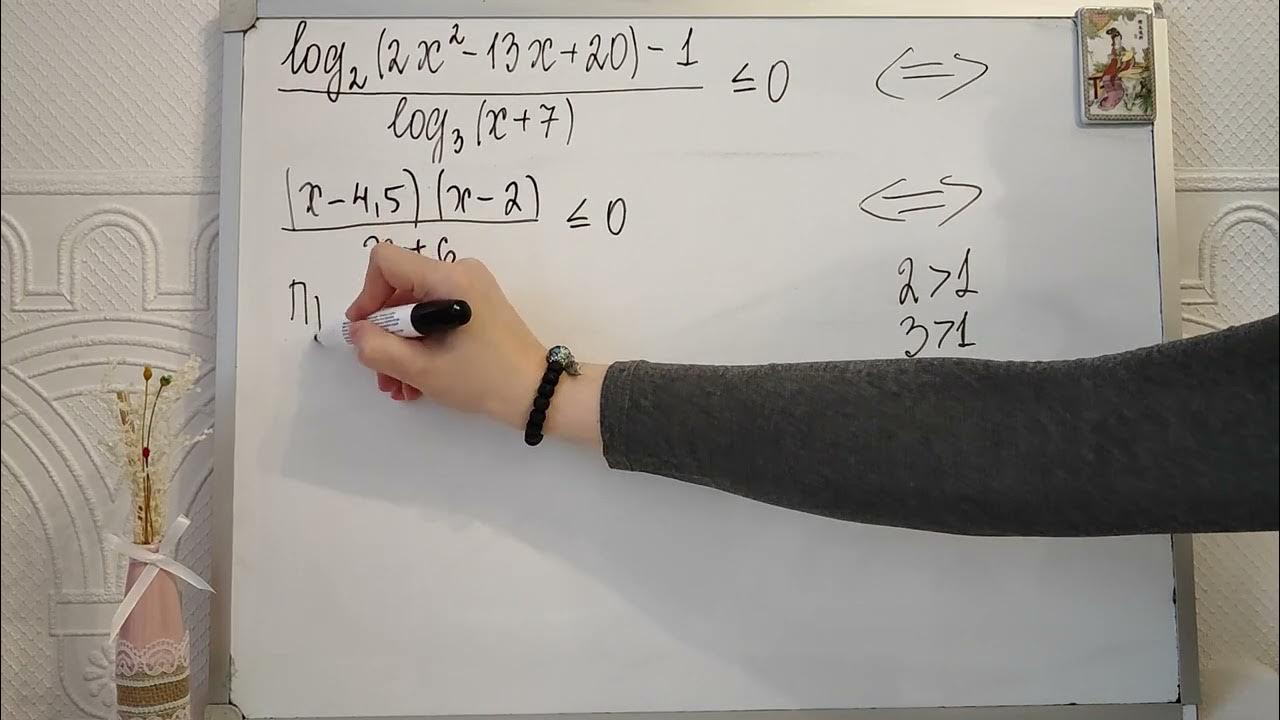 log₂(2x² - 13x + 20) - 1
log₃(x + 7)
≤ 0 ⇔
(x - 4,5)(x - 2)
≤ 0 ⇔
2 > 1
3 > 1